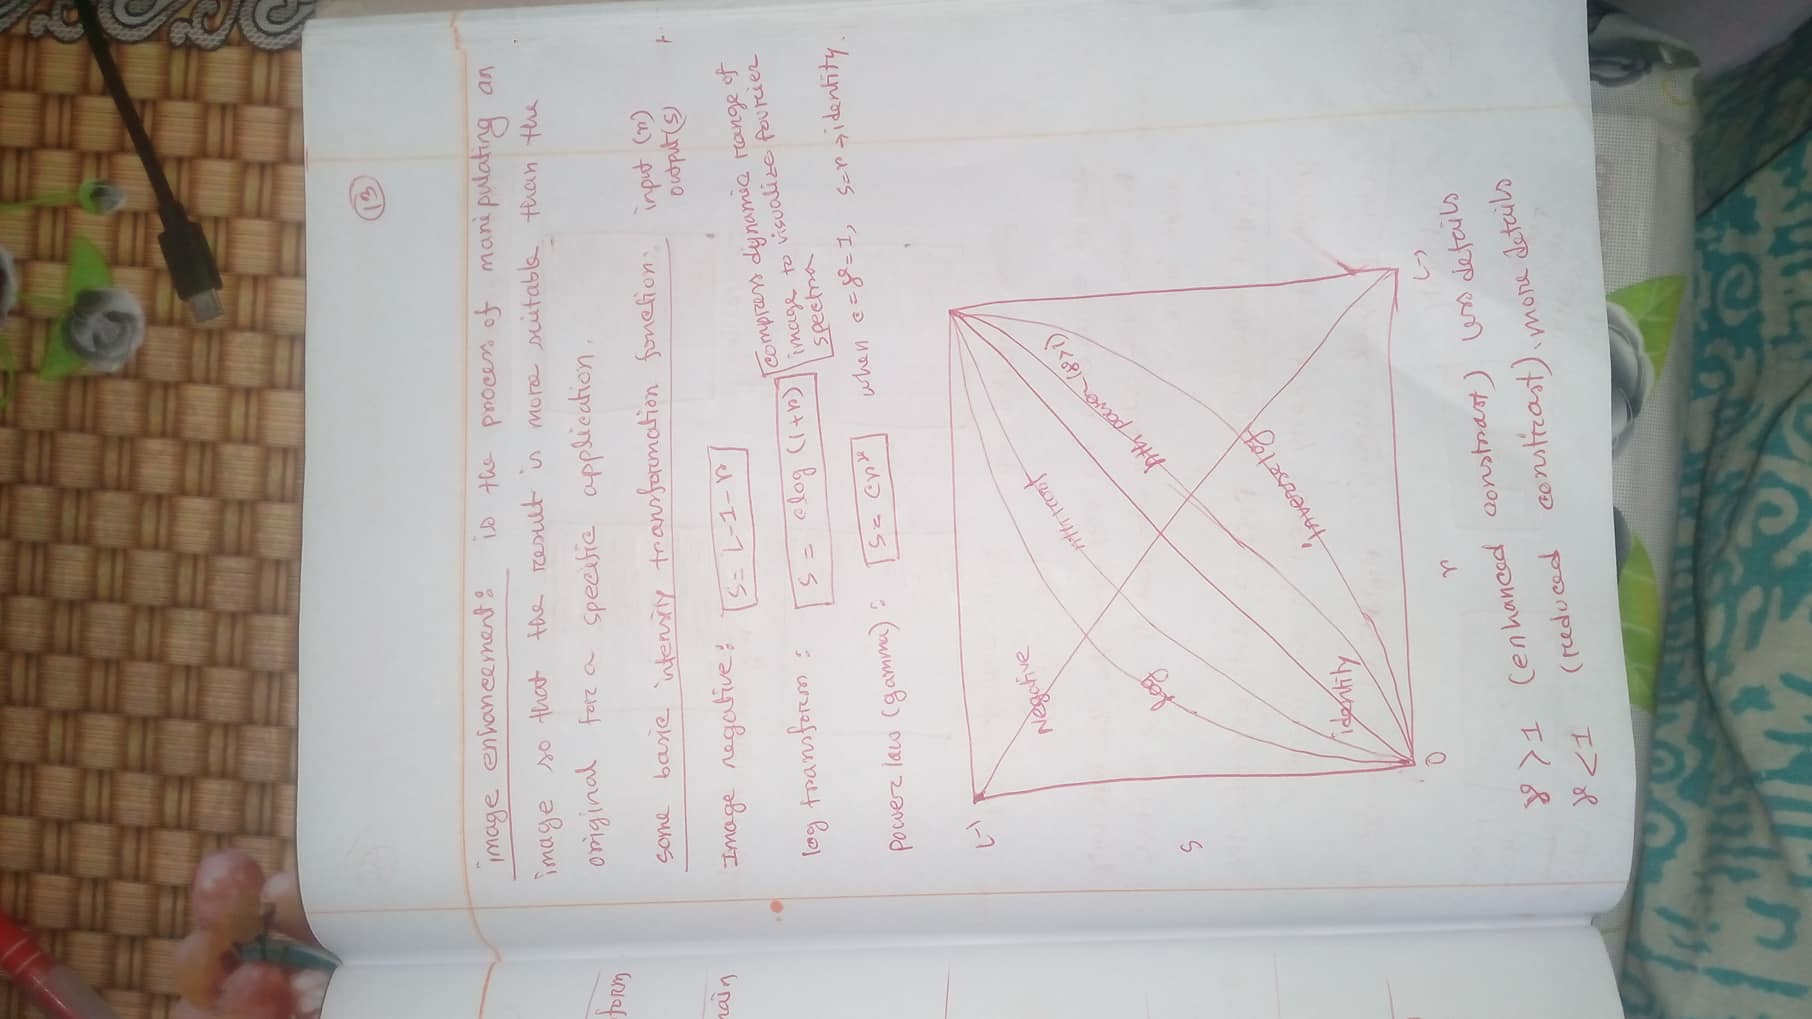 13
image enhancement: is the process of manipulating an
image so that the result is more suitable than the
original for a specific application.
some basic intensity transformation function: input (r)
output (s)
Image negative: s = L-1-r
log transform: s = clog (1+r) compress dynamic range of
image to visualize fourier
spectra
power law (gamma): s = cr^γ when c=γ=1, s=r→identity.
L-1
Negative
nth root
nth power (γ>1)
log
inverse log
identity
s
0
r
L-1
γ >1 (enhanced constrast) less details
γ <1 (reduced constrast). more details
form
main